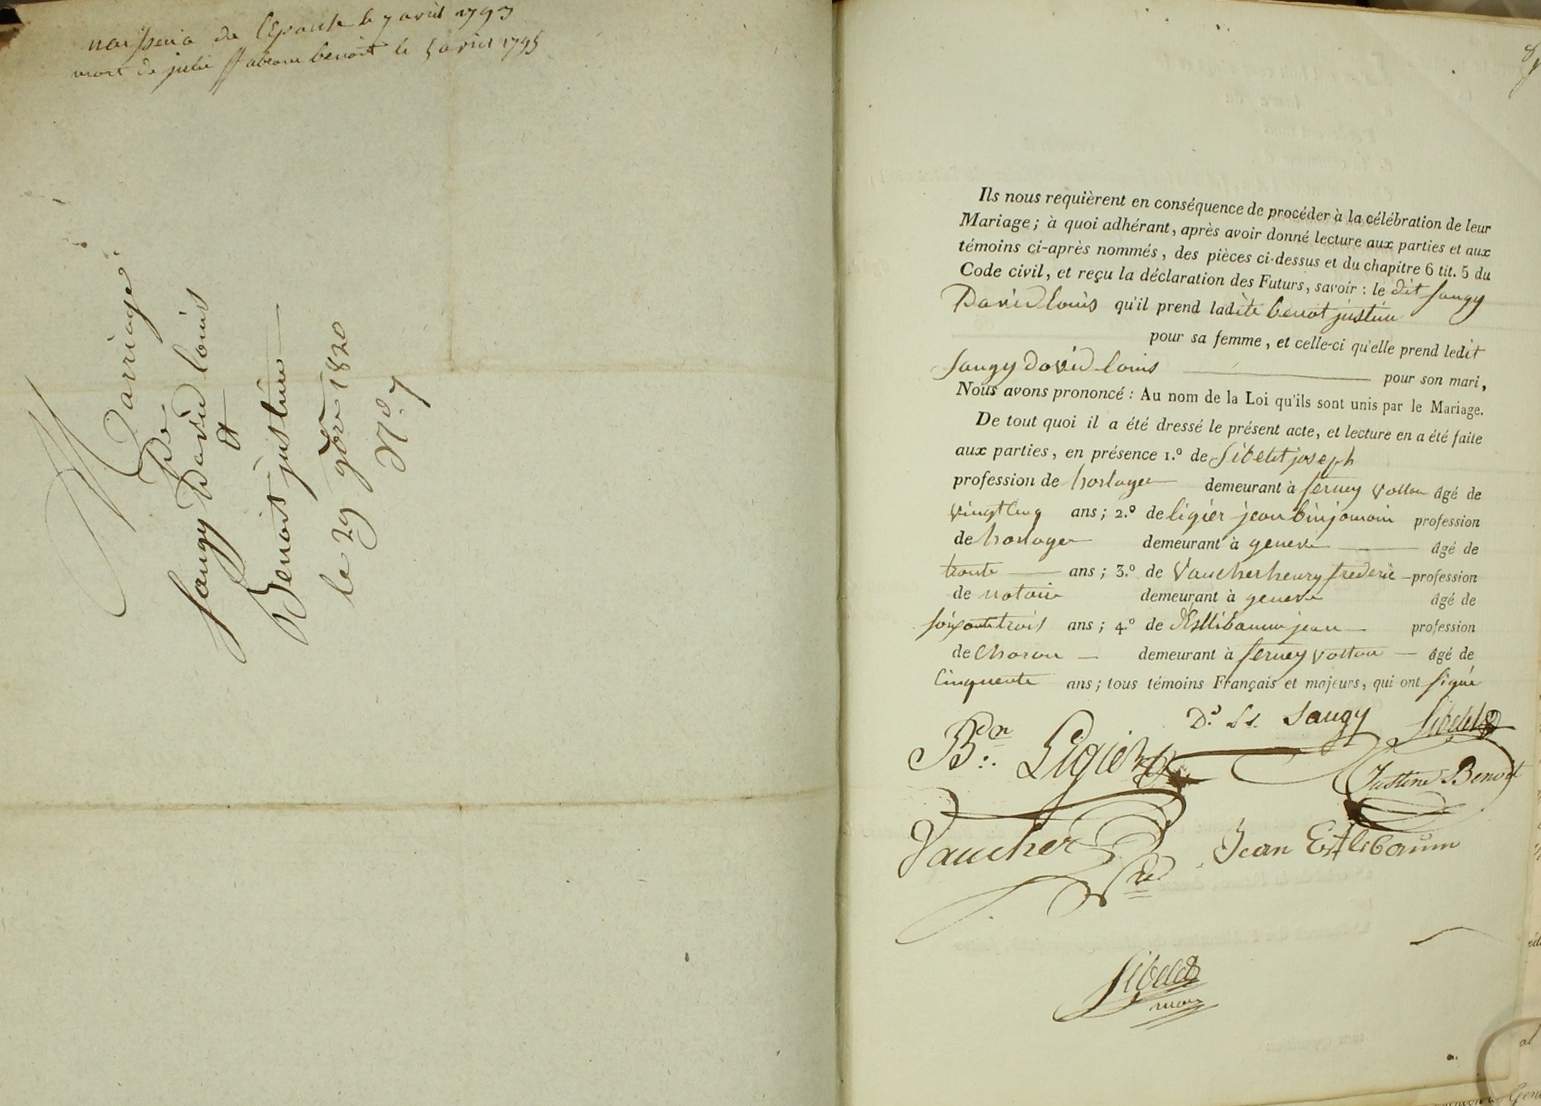 de l'Epouse le 7 avril 1793
mort de julie benoit le 5 avril 1795
Mariage
De
Saugy David louis
Et
Benoit justine
le 29 9bre 1820
N.o 7
Ils nous requièrent en conséquence de procéder à la célébration de leur
Mariage; à quoi adhérant, après avoir donné lecture aux parties et aux
témoins ci-après nommés, des pièces ci-dessus et du chapitre 6 tit. 5 du
Code civil, et reçu la déclaration des Futurs, savoir : le dit Saugy
David louis qu'il prend ladite benoit justine
pour sa femme, et celle-ci qu'elle prend ledit
Saugy David louis pour son mari,
Nous avons prononcé : Au nom de la Loi qu'ils sont unis par le Mariage.
De tout quoi il a été dressé le présent acte, et lecture en a été faite
aux parties, en présence 1.º de Sibelet joseph
profession de horloger demeurant à ferney Voltere âgé de
Vingt Cinq ans; 2.º de ligier jean binjamain profession
de horloger demeurant à geneve âgé de
trente ans; 3.º de Vaucher henry frederic profession
de notaire demeurant à geneve âgé de
soixante trois ans; 4.º de Estlibaum jean profession
de Charon demeurant à ferney Voltere âgé de
Cinquente ans; tous témoins Français et majeurs, qui ont signé
D.d Ls. Saugy Sibelet
B.in Ligier
Justine Benoit
Vaucher Jean Estlibaum
Sibelet
maire